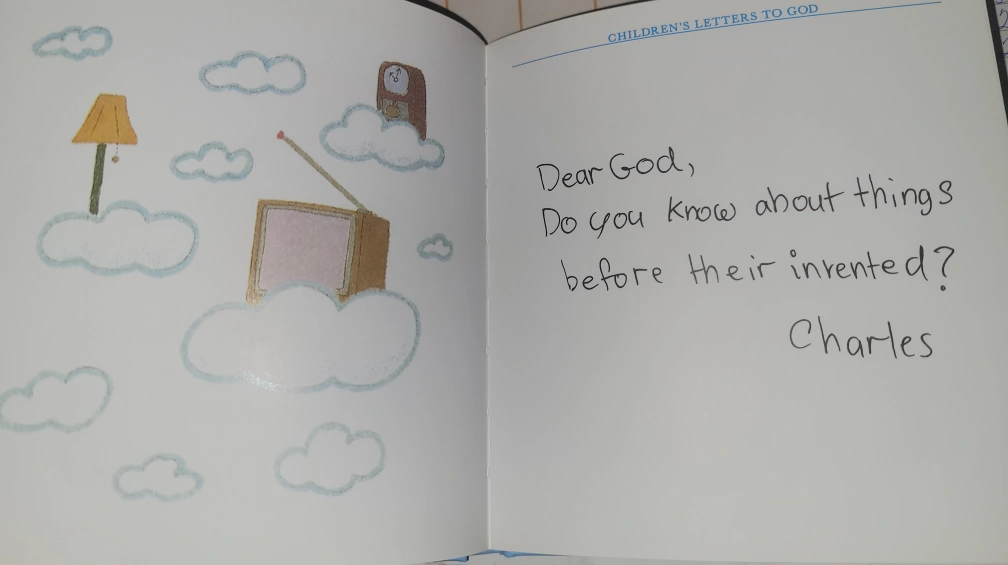 CHILDREN'S LETTERS TO GOD
Dear God,
Do you know about things
before their invented?
Charles